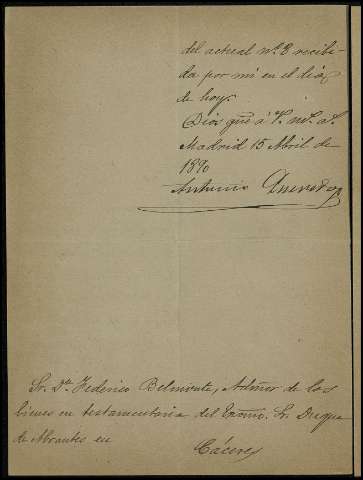 del actual nº 8 recibi-
da por mi en el dia
de hoy.
Dios gue á V. m.s a.s
Madrid 15 Abril de
1890
Antonio Quevedo
Sr. Dn. Federico Belmonte, Admor de los
bienes en testamentaria del Excmo. Sr. Duque
de Abrantes en
Cáceres